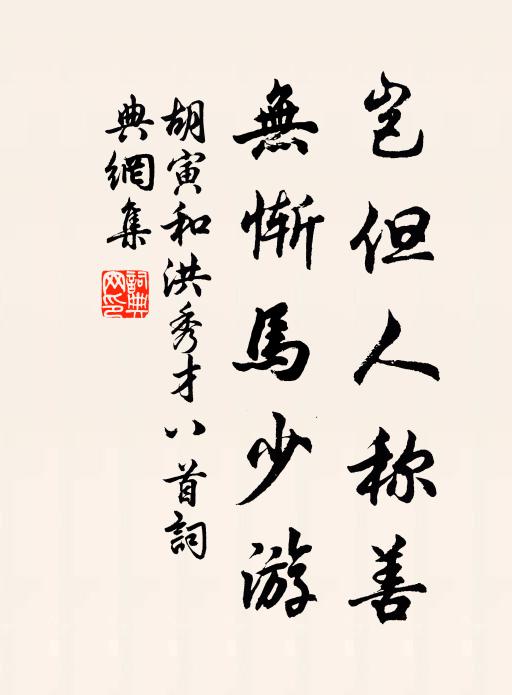 岂但人称善
無慚馬少游
胡寅和洪秀才八首詞
典網集
詞典
网印